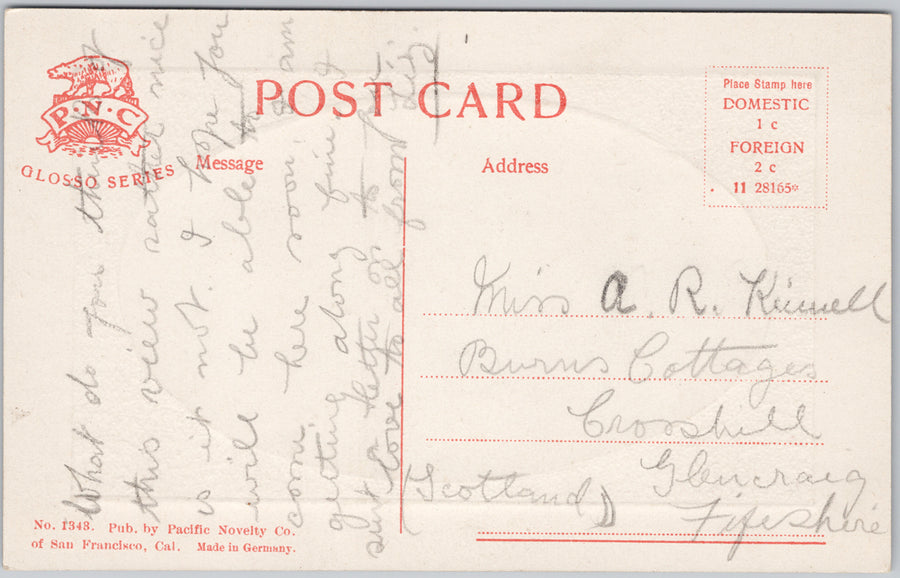 P·N·C
GLOSSO SERIES
POST CARD
Place Stamp here
DOMESTIC
1 c
FOREIGN
2 c
11 28165*
Message
Address
What do you think of
this view rather nice
is it not. I hope you
will be able to
come here soon. I am
getting along fine I
sent letter to
love to all from Liz.
Miss A. R. Kinnell
Burns Cottages
Crosshill
Glencraig
Fifeshire
(Scotland)
No. 1343. Pub. by Pacific Novelty Co.
of San Francisco, Cal. Made in Germany.